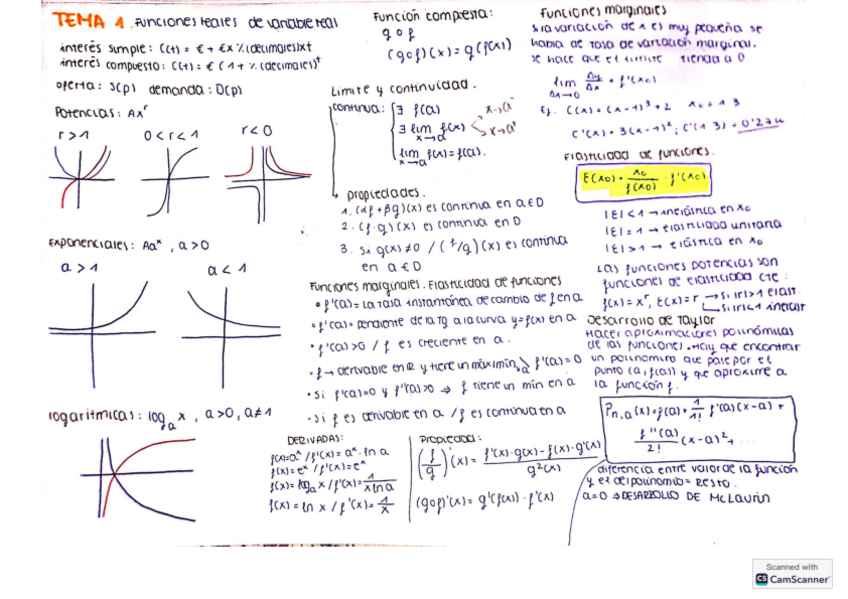 TEMA 1. Funciones reales de variable real
interés simple: C(t) = € + € x %(decimales)xt
interés compuesto: C(t) = € (1 + %(decimales))ᵗ
oferta: S(p) demanda: D(p)
Potencias: Axʳ
r > 1
0 < r < 1
r < 0
Exponenciales: Aaˣ, a > 0
a > 1
a < 1
logarítmicas: logₐ x, a > 0, a ≠ 1
Función compuesta:
g o f
(g o f)(x) = g(f(x))
Límite y continuidad.
continua: ∃ f(a)
∃ lim f(x) x→a⁻ x→a⁺
x→a
lim f(x) = f(a).
x→a
propiedades.
1. (αf + βg)(x) es continua en a ∈ D
2. (f·g)(x) es continua en D
3. Si g(x) ≠ 0 / (f/g)(x) es continua
en a ∈ D
Funciones marginales. Elasticidad de funciones
• f'(a) = La tasa instantánea de cambio de f en a
• f'(a) = pendiente de la tg a la curva y = f(x) en a
• f'(a) > 0 / f es creciente en a.
• f → derivable en ℝ y tiene un máx/mín, f'(a) = 0
• Si f'(a) = 0 y f''(a) > 0 ⇒ f tiene un mín en a
• Si f es derivable en a / f es continua en a
DERIVADAS:
f(x) = aˣ / f'(x) = aˣ · ln a
f(x) = eˣ / f'(x) = eˣ
f(x) = logₐ x / f'(x) = 1/(x ln a)
f(x) = ln x / f'(x) = 1/x
Propiedad:
(f/g)'(x) = (f'(x)·g(x) - f(x)·g'(x))/g²(x)
(g o f)'(x) = g'(f(x)) · f'(x)
Funciones marginales
Si la variación de x es muy pequeña se
habla de tasa de variación marginal.
se hace que el límite tienda a 0
lim Δy/Δx = f'(x₀)
Δx→0
Ej. C(x) = (x-1)³ + 2 x₀ = 1'3
C'(x) = 3(x-1)²; C'(1'3) = 0'27u
Elasticidad de funciones.
E(x₀) = x₀/f(x₀) · f'(x₀)
|E| < 1 → inelástica en x₀
|E| = 1 → elasticidad unitaria
|E| > 1 → elástica en x₀
Las funciones potencias son
funciones de elasticidad cte:
f(x) = xʳ, E(x) = r → Si |r| > 1 elást.
→ Si |r| < 1 inelást
Desarrollo de Taylor
Hacer aproximaciones polinómicas
de las funciones. Hay que encontrar
un polinomio que pase por el
punto (a, f(a)) y que aproxime a
la función f.
Pₙ,ₐ(x) = f(a) + 1/1! f'(a)(x-a) +
f''(a)/2! (x-a)² + .....
diferencia entre valor de la función
y el del polinomio = RESTO.
a = 0 ⇒ DESARROLLO DE McLaurin
Scanned with
CS CamScanner